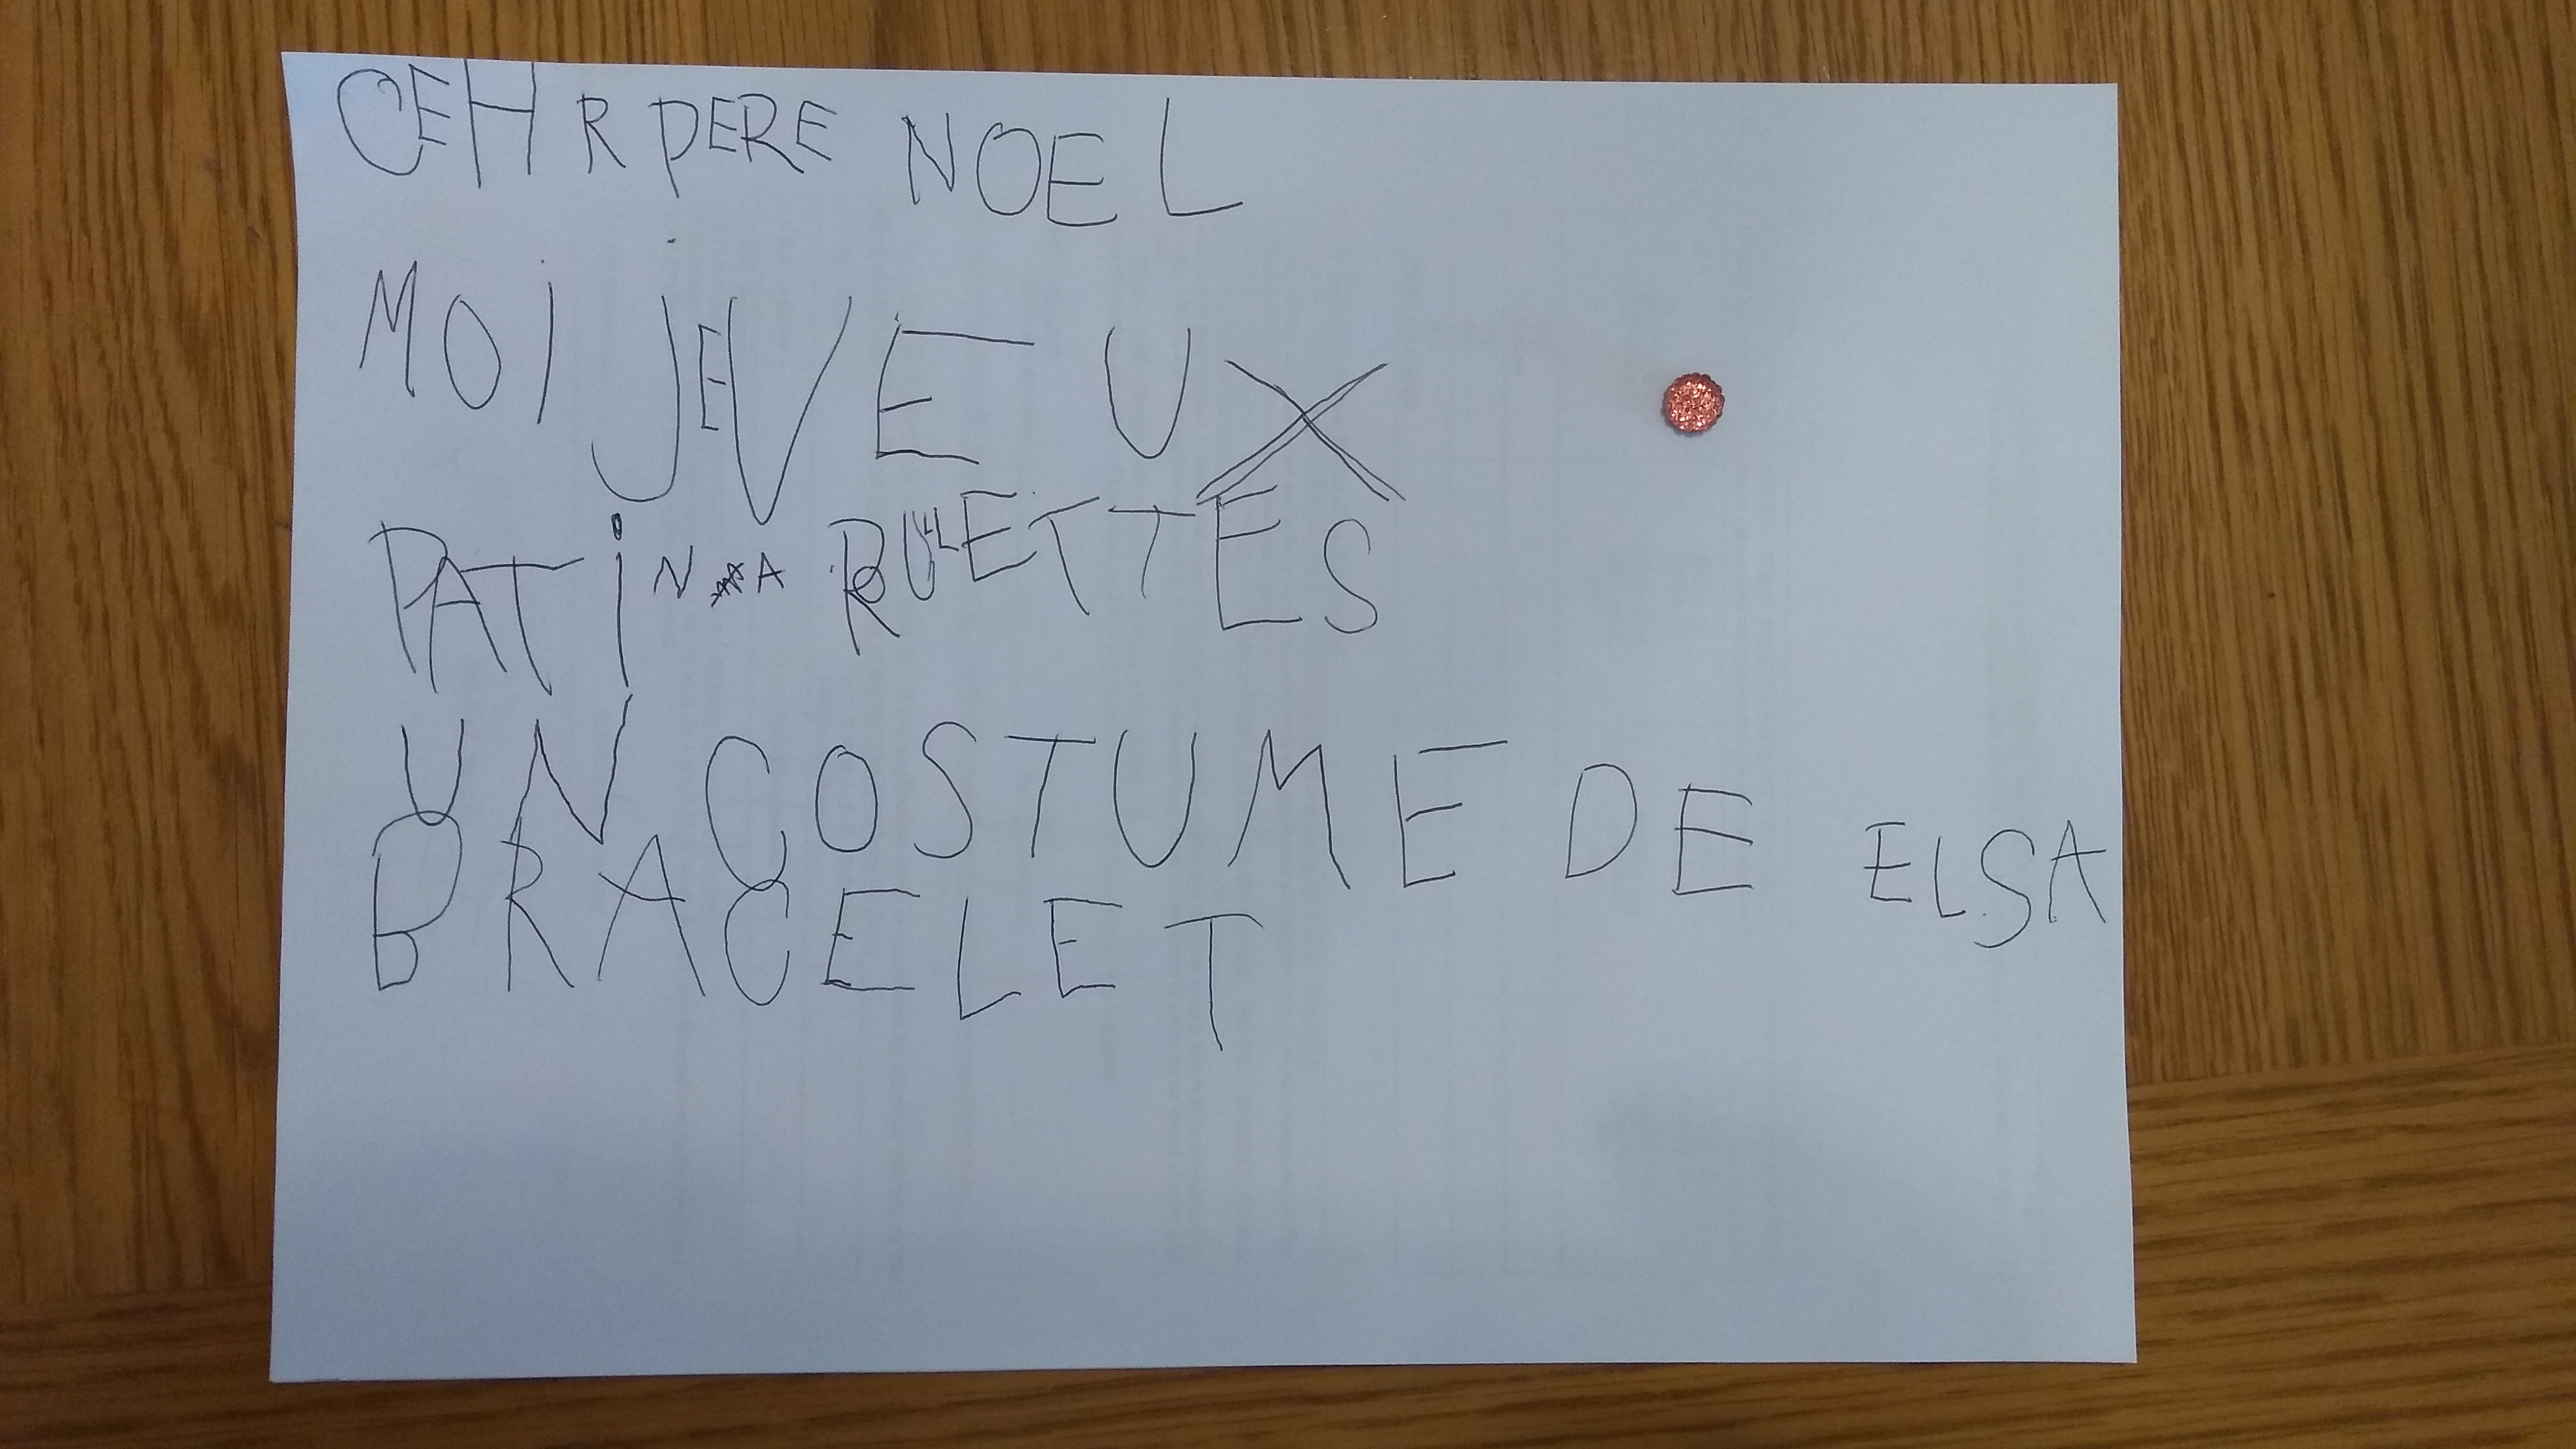 CEHR PERE NOEL
MOI JE VEUX
PATIN A ROULLETTES
UN COSTUME DE ELSA
BRACELET